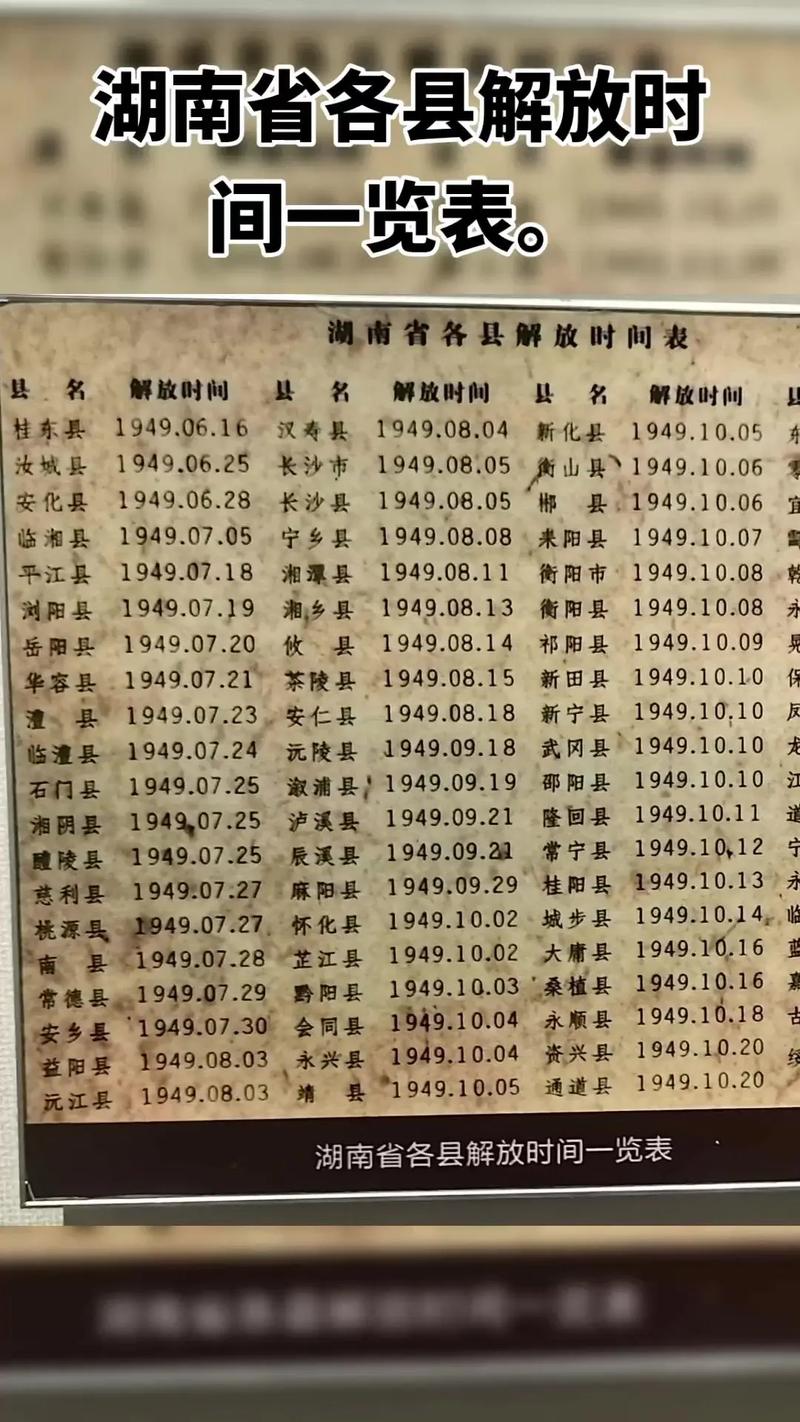 湖南省各县解放时
间一览表。
湖南省各县解放时间表
县 名 解放时间 县 名 解放时间 县 名 解放时间 县
桂东县 1949.06.16 汉寿县 1949.08.04 新化县 1949.10.05
汝城县 1949.06.25 长沙市 1949.08.05 衡山县 1949.10.06
安化县 1949.06.28 长沙县 1949.08.05 郴 县 1949.10.06
临湘县 1949.07.05 宁乡县 1949.08.08 耒阳县 1949.10.07
平江县 1949.07.18 湘潭县 1949.08.11 衡阳市 1949.10.08
浏阳县 1949.07.19 湘乡县 1949.08.13 衡阳县 1949.10.08 永
岳阳县 1949.07.20 攸 县 1949.08.14 祁阳县 1949.10.09 晃
华容县 1949.07.21 茶陵县 1949.08.15 新田县 1949.10.10 保
澧 县 1949.07.23 安仁县 1949.08.18 新宁县 1949.10.10 凤
临澧县 1949.07.24 沅陵县 1949.09.18 武冈县 1949.10.10 龙
石门县 1949.07.25 溆浦县 1949.09.19 邵阳县 1949.10.10 江
湘阴县 1949.07.25 泸溪县 1949.09.21 隆回县 1949.10.11 道
醴陵县 1949.07.25 辰溪县 1949.09.21 常宁县 1949.10.12 宁
慈利县 1949.07.27 麻阳县 1949.09.29 桂阳县 1949.10.13 永
桃源县 1949.07.27 怀化县 1949.10.02 城步县 1949.10.14 临
南 县 1949.07.28 芷江县 1949.10.02 大庸县 1949.10.16 蓝
常德县 1949.07.29 黔阳县 1949.10.03 桑植县 1949.10.16 嘉
安乡县 1949.07.30 会同县 1949.10.04 永顺县 1949.10.18 古
益阳县 1949.08.03 永兴县 1949.10.04 资兴县 1949.10.20
沅江县 1949.08.03 靖 县 1949.10.05 通道县 1949.10.20
湖南省各县解放时间一览表